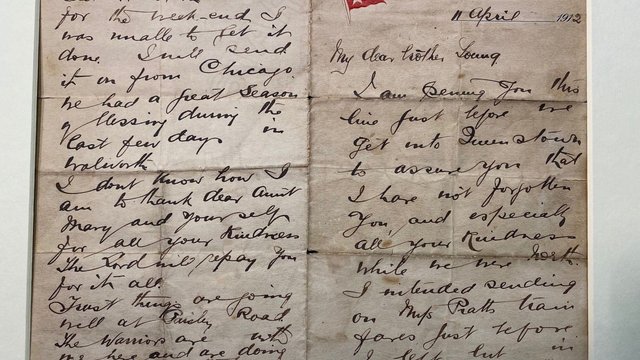 11 April 1912
My dear brother Young
I am penning you this
line just before we
get into Queenstown
to assure you that
I have not forgotten
you, and especially
all your kindness
while we were North.
I intended sending
on Miss Pratts train
fares just before
I left but in
for the week-end I
was unable to get it
done. I will send
it on from Chicago
we had a great season
of blessing during the
last few days in
Walworth
I dont know how I
am to thank dear Aunt
Mary and yourself
for all your kindness
The Lord will repay you
for it all.
Trust things are going
well at Paisley Road
The Warriors are with
me here and are doing